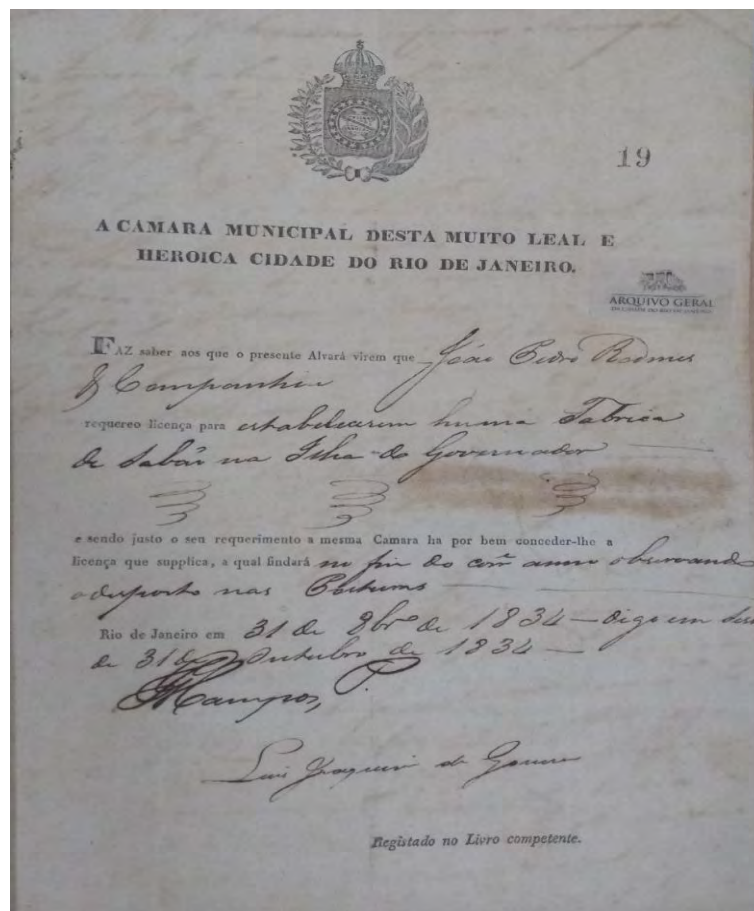 19
A CAMARA MUNICIPAL DESTA MUITO LEAL E
HEROICA CIDADE DO RIO DE JANEIRO.
ARQUIVO GERAL
DA CIDADE DO RIO DE JANEIRO
FAZ saber aos que o presente Alvará virem que João Pedro
& Companhia
requereo licença para estabelecerem huma Fabrica
de Sabão na Ilha do Governador
e sendo justo o seu requerimento a mesma Camara ha por bem conceder-lhe a
licença que supplica, a qual findará no fim do corr anno observando
o desposto nas Posturas
Rio de Janeiro em 31 de 8bro de 1834 — digo em
de 31 de Outubro de 1834 —
Campos, P.
Luis Joaquim de Gouvea
Registado no Livro competente.